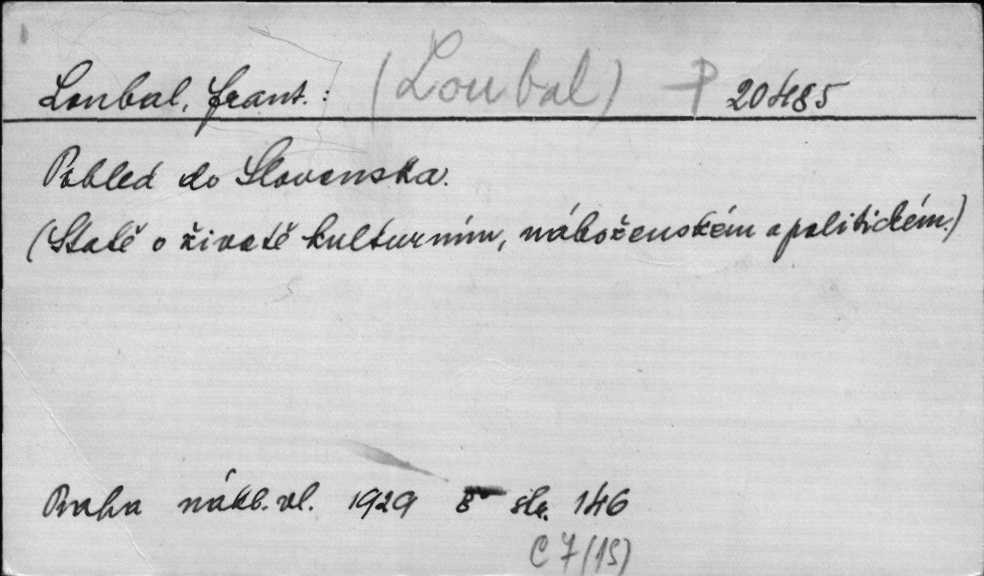 Loubal, Frant.: (Loubal) P 20485
Pohled do Slovenska.
(Statě o životě kulturním, náboženském a politickém.)
Praha nákl. vl. 1929 8° str. 146
C 7 (15)